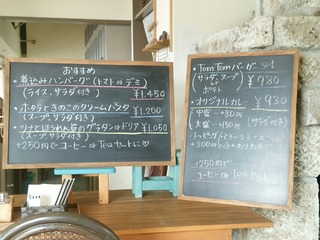 おすすめ
・煮込みハンバーグ(トマト or デミ)
(ライス、サラダ付き) ¥1,450
・ホタテときのこのクリームパスタ
(スープ、サラダ付き) ¥1,200
・ツナとほうれん草のグラタン or ドリア ¥1,050
(スープ、サラダ付き)
+250円でコーヒー or Teaセットに♡
・Tom Tomバーガー set
(サラダ、スープ or ポテト) ¥930
・オリジナルカレー ¥930
中盛 +80円
大盛 +150円 (サラダ付き)
・トッピング
+200円
+250円で
コーヒー or Teaセット